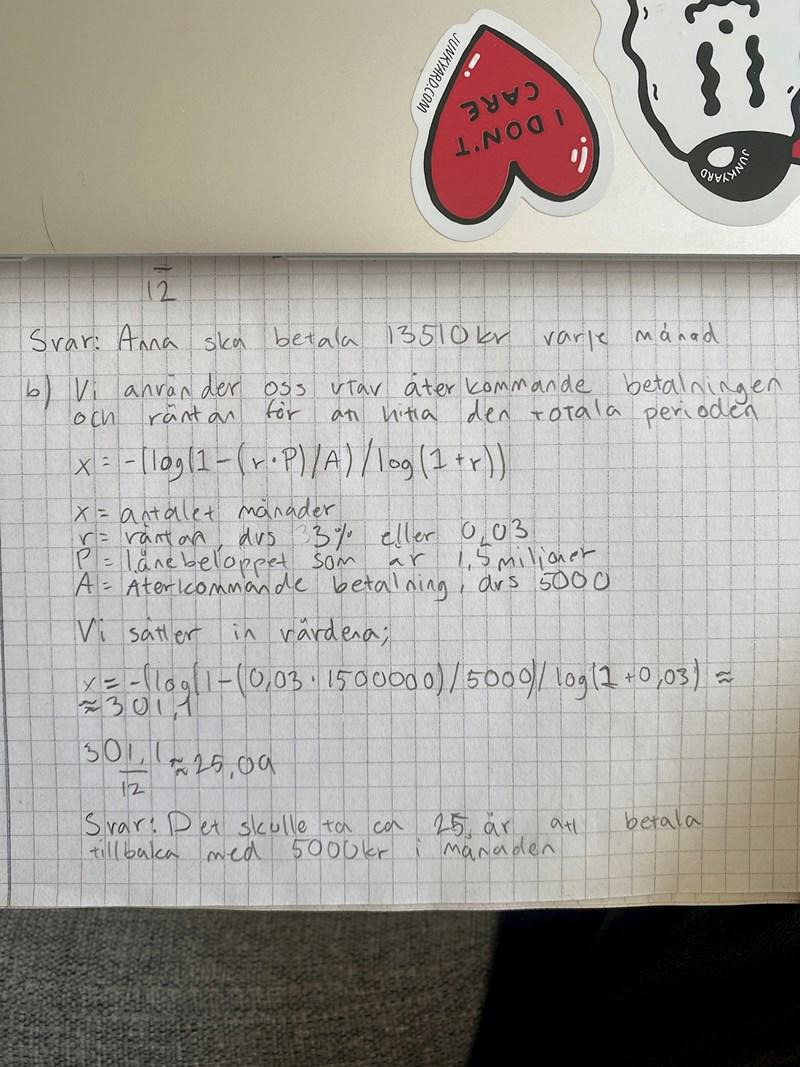 JUNKYARD.COM
I DON'T
CARE
JUNKYARD
12
Svar: Anna ska betala 13510kr varje månad
b) Vi använder oss utav återkommande betalningen
och räntan för att hitta den totala perioden
x = -(log(1-(r·P)/A)/log(1+r))
x = antalet månader
r = räntan, dvs 3% eller 0,03
P = lånebeloppet som är 1,5 miljoner
A = Återkommande betalning, dvs 5000
Vi sätter in värdena;
x = -(log(1-(0,03·1500000)/5000)/log(1+0,03) ≈
≈301,1
301,1
12
≈25,09
Svar: Det skulle ta ca 25, år att betala
tillbaka med 5000kr i månaden